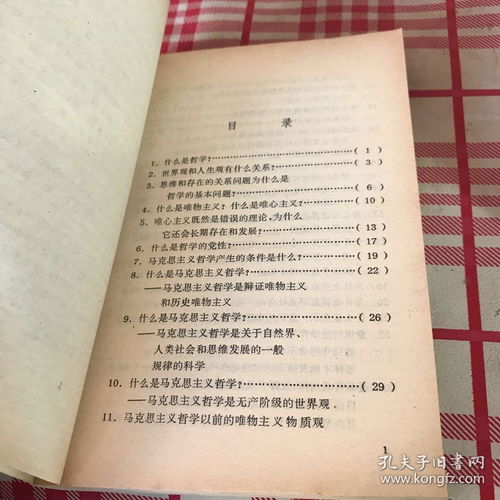 目 录
1. 什么是哲学?……………………( 1 )
2. 世界观和人生观有什么关系?……( 3 )
3. 思维和存在的关系问题为什么是
哲学的基本问题?………………( 6 )
4. 什么是唯物主义? 什么是唯心主义?……(10)
5. 唯心主义既然是错误的理论,为什么
它还会长期存在和发展?…………(13)
6. 什么是哲学的党性?………………(17)
7. 马克思主义哲学产生的条件是什么?……(19)
8. 什么是马克思主义哲学?……………(22)
——马克思主义哲学是辩证唯物主义
和历史唯物主义
9. 什么是马克思主义哲学?……………(26)
——马克思主义哲学是关于自然界、
人类社会和思维发展的一般
规律的科学
10. 什么是马克思主义哲学?……………(29)
——马克思主义哲学是无产阶级的世界观
11. 马克思主义哲学以前的唯物主义物质观
1
孔夫子旧书网
www.kongfz.com